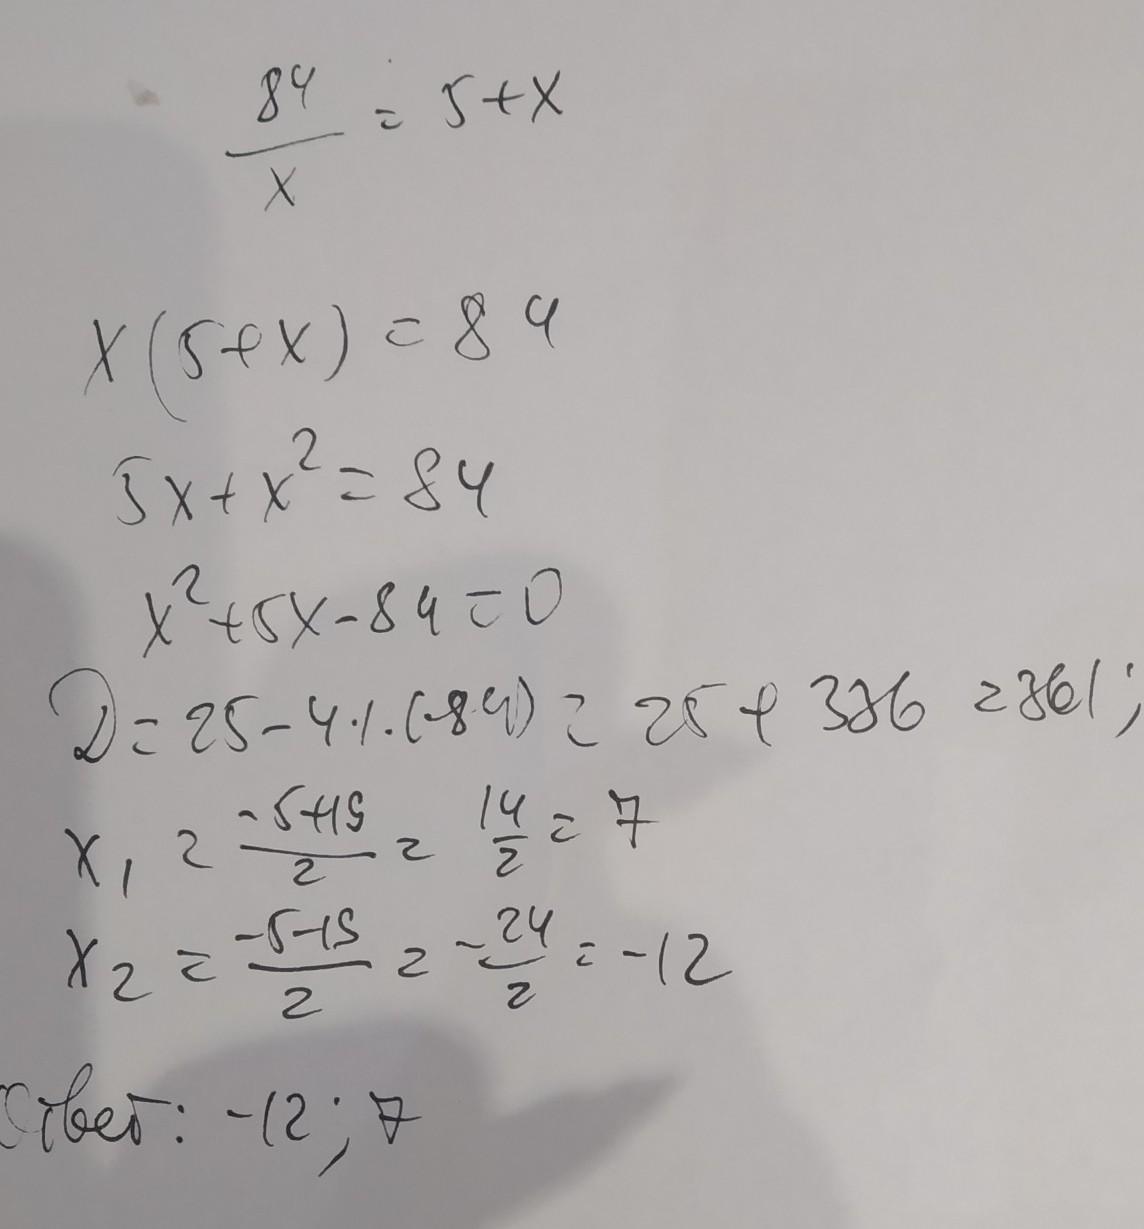 84/x = 5+x
x(5+x) = 84
5x+x²=84
x²+5x-84=0
D=25-4·1·(-84)=25+336=361;
x₁ = (-5+19)/2 = 14/2 = 7
x₂ = (-5-19)/2 = -24/2 = -12
Ответ: -12; 7